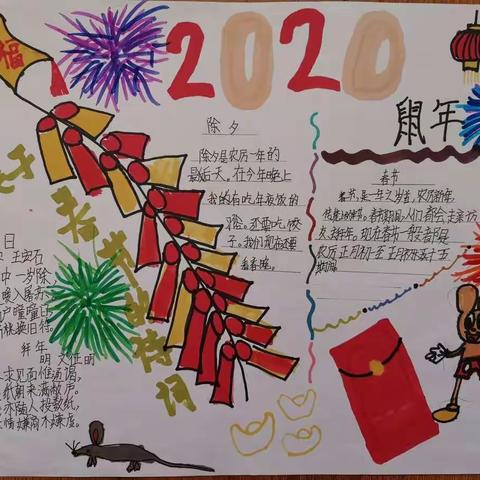 福
2020
鼠年
除夕
除夕是农历一年的
最后一天，在今年晚上
我的有吃年夜饭的
习俗。还要吃饺
子。我们现在还
看春晚。
春节
春节，是一年之岁首，农历新年
传统的节。春节期间，人们都会走亲访
友，拜年。现在春节一般者都是
农历正月初一至
关于
春节的诗词
日
王安石
中一岁除
暖入屠苏
户曈曈日
新桃换旧符
拜年
明 文征明
求见面惟通谒，
纸朝来满敝庐。
亦随人投数纸，
情嫌简不嫌虚。